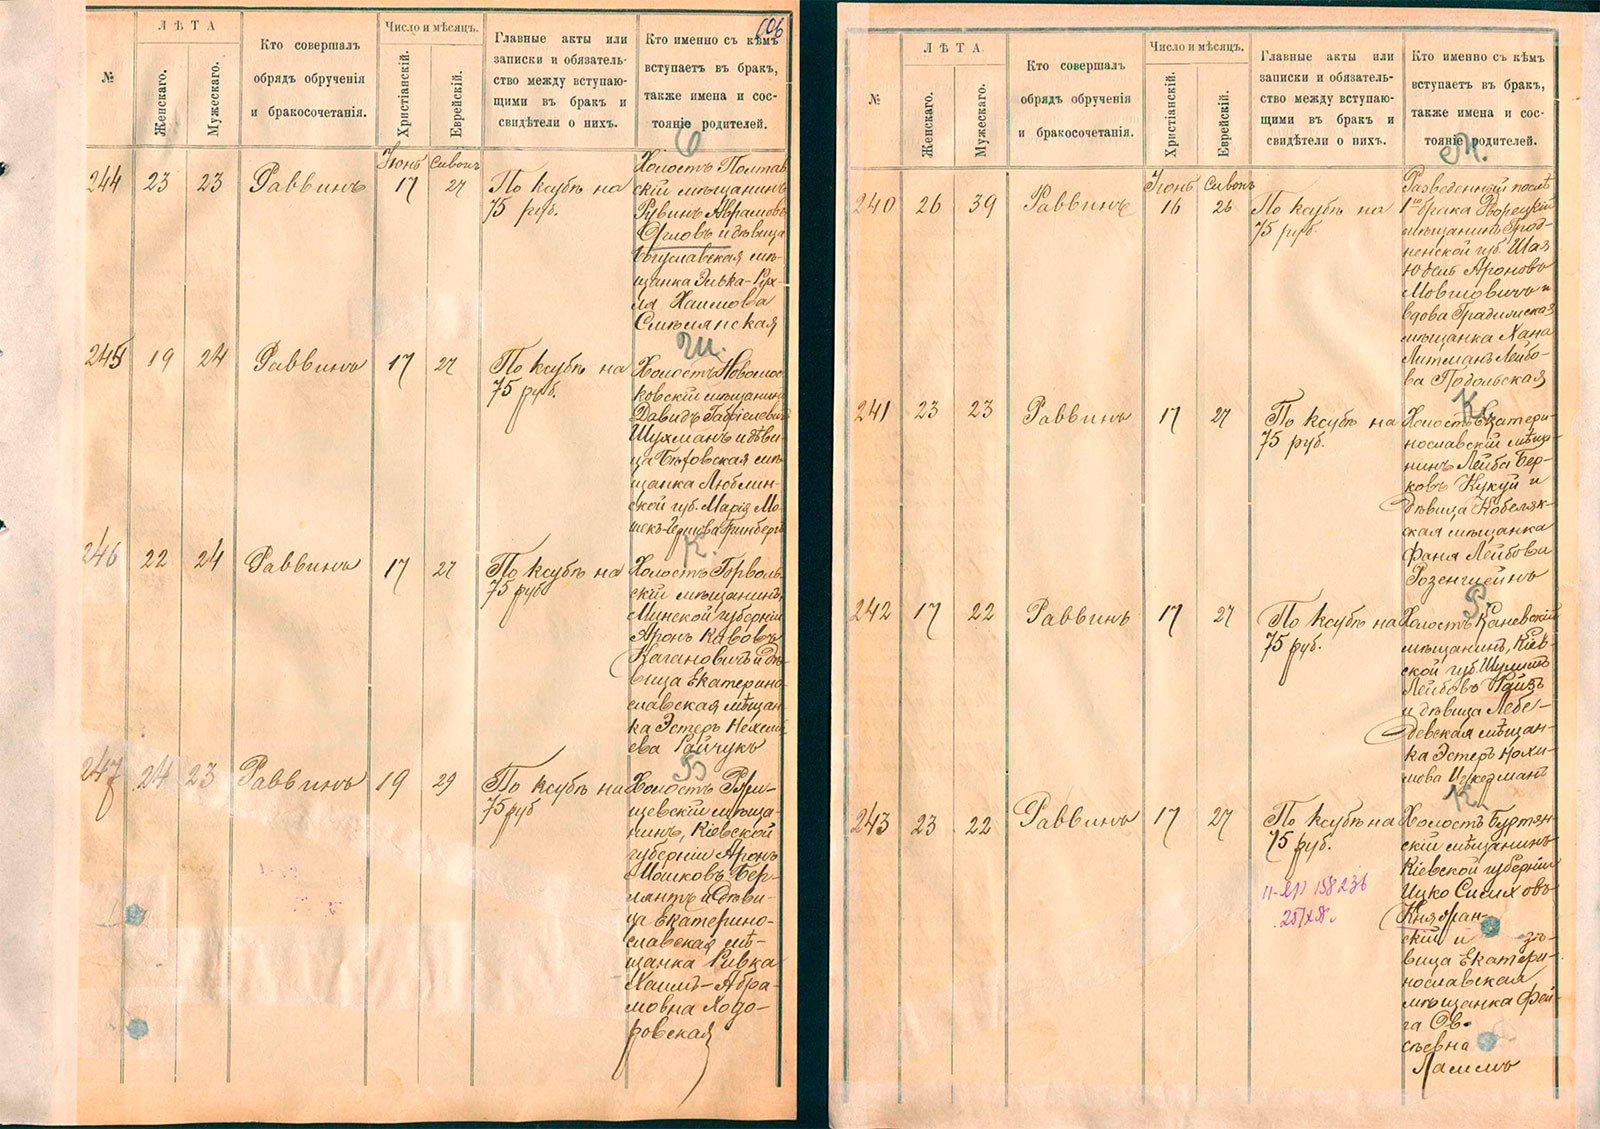 606
№
ЛѢТА
Женскаго.
Мужескаго.
Кто совершалъ
обрядъ обрученія
и бракосочетанія.
Число и мѣсяцъ.
Христіанскій.
Еврейскій.
Главные акты или
записки и обязатель-
ство между вступаю-
щими въ бракъ и
свидѣтели о нихъ.
Кто именно съ кѣмъ
вступаетъ въ бракъ,
также имена и сос-
тояніе родителей.
Іюнь Сивонъ
244 23 23 Раввинъ 17 27 По ксубѣ на
75 руб.
Холостъ Полтав
скій мѣщанинъ
Рувинъ Аврамовъ
Орловъ и дѣвица
Богуславская мѣ-
щанка Элька-Рух-
ля Хаимова
Смѣлянская
Ш.
245 19 24 Раввинъ 17 27 По ксубѣ на
75 руб.
Холостъ Новомос
ковскій мѣщанинъ
Давидъ Габріелевъ
Шухманъ и дѣви-
ца мѣ-
щанка Люблин-
ской губ. Марія Мо-
шекъ- Гринбергъ
К.
246 22 24 Раввинъ 17 27 По ксубѣ на
75 руб
Холостъ Горволь-
скій мѣщанинъ
Минской губерніи
Аронъ
Кагановичъ и дѣ-
вица Екатерино-
славская мѣщан-
ка Эстеръ Нехемі
ева Райчукъ
Б
247 24 23 Раввинъ 19 29 По ксубѣ на
75 руб
Холостъ Ржи-
щевскій мѣща-
нинъ, Кіевской
губерніи Аронъ
Мошковъ Бер-
лянтъ и дѣви-
ца Екатерино-
славская мѣ-
щанка Ривка
Хаимъ-Абра-
мовна Ходо-
ровская
№
ЛѢТА.
Женскаго.
Мужескаго.
Кто совершалъ
обрядъ обрученія
и бракосочетанія.
Число и мѣсяцъ.
Христіанскій.
Еврейскій.
Главные акты или
записки и обязатель-
ство между вступаю-
щими въ бракъ и
свидѣтели о нихъ.
Кто именно съ кѣмъ
вступаетъ въ бракъ,
также имена и сос-
тояніе родителей.
М.
Іюнь Сивонъ
240 26 39 Раввинъ 16 26 По ксубѣ на
75 руб.
Разведенный послѣ
1го брака Дворецкій
мѣщанинъ Грод-
ненской губ. Шая
Юдель Ароновъ
Мовшовичъ и
вдова Градижская
мѣщанка Хана
Литманъ Лейбо-
ва Подольская
К.
241 23 23 Раввинъ 17 27 По ксубѣ на
75 руб.
Холостъ Екатери-
нославскій мѣща-
нинъ Лейба Бер-
ковъ Кукуй и
дѣвица Кобеляк-
ская мѣщанка
Фаня Лейбова
Розенштейнъ
Р.
242 17 22 Раввинъ 17 27 По ксубѣ на
75 руб.
Холостъ Каневскій
мѣщанинъ, Кіев-
ской губ. Шулимъ
Лейбовъ Райзъ
и дѣвица Лебе-
девская мѣщан-
ка Эстеръ Нохи-
мова Цукерманъ
К.
243 23 22 Раввинъ 17 27 По ксубѣ на
75 руб.
Холостъ Буртян-
скій мѣщанинъ
Кіевской губерніи
Ицко
Княжан-
скій и дѣ-
вица Екатери-
нославская
мѣщанка Фей-
га Ов-
сѣевна